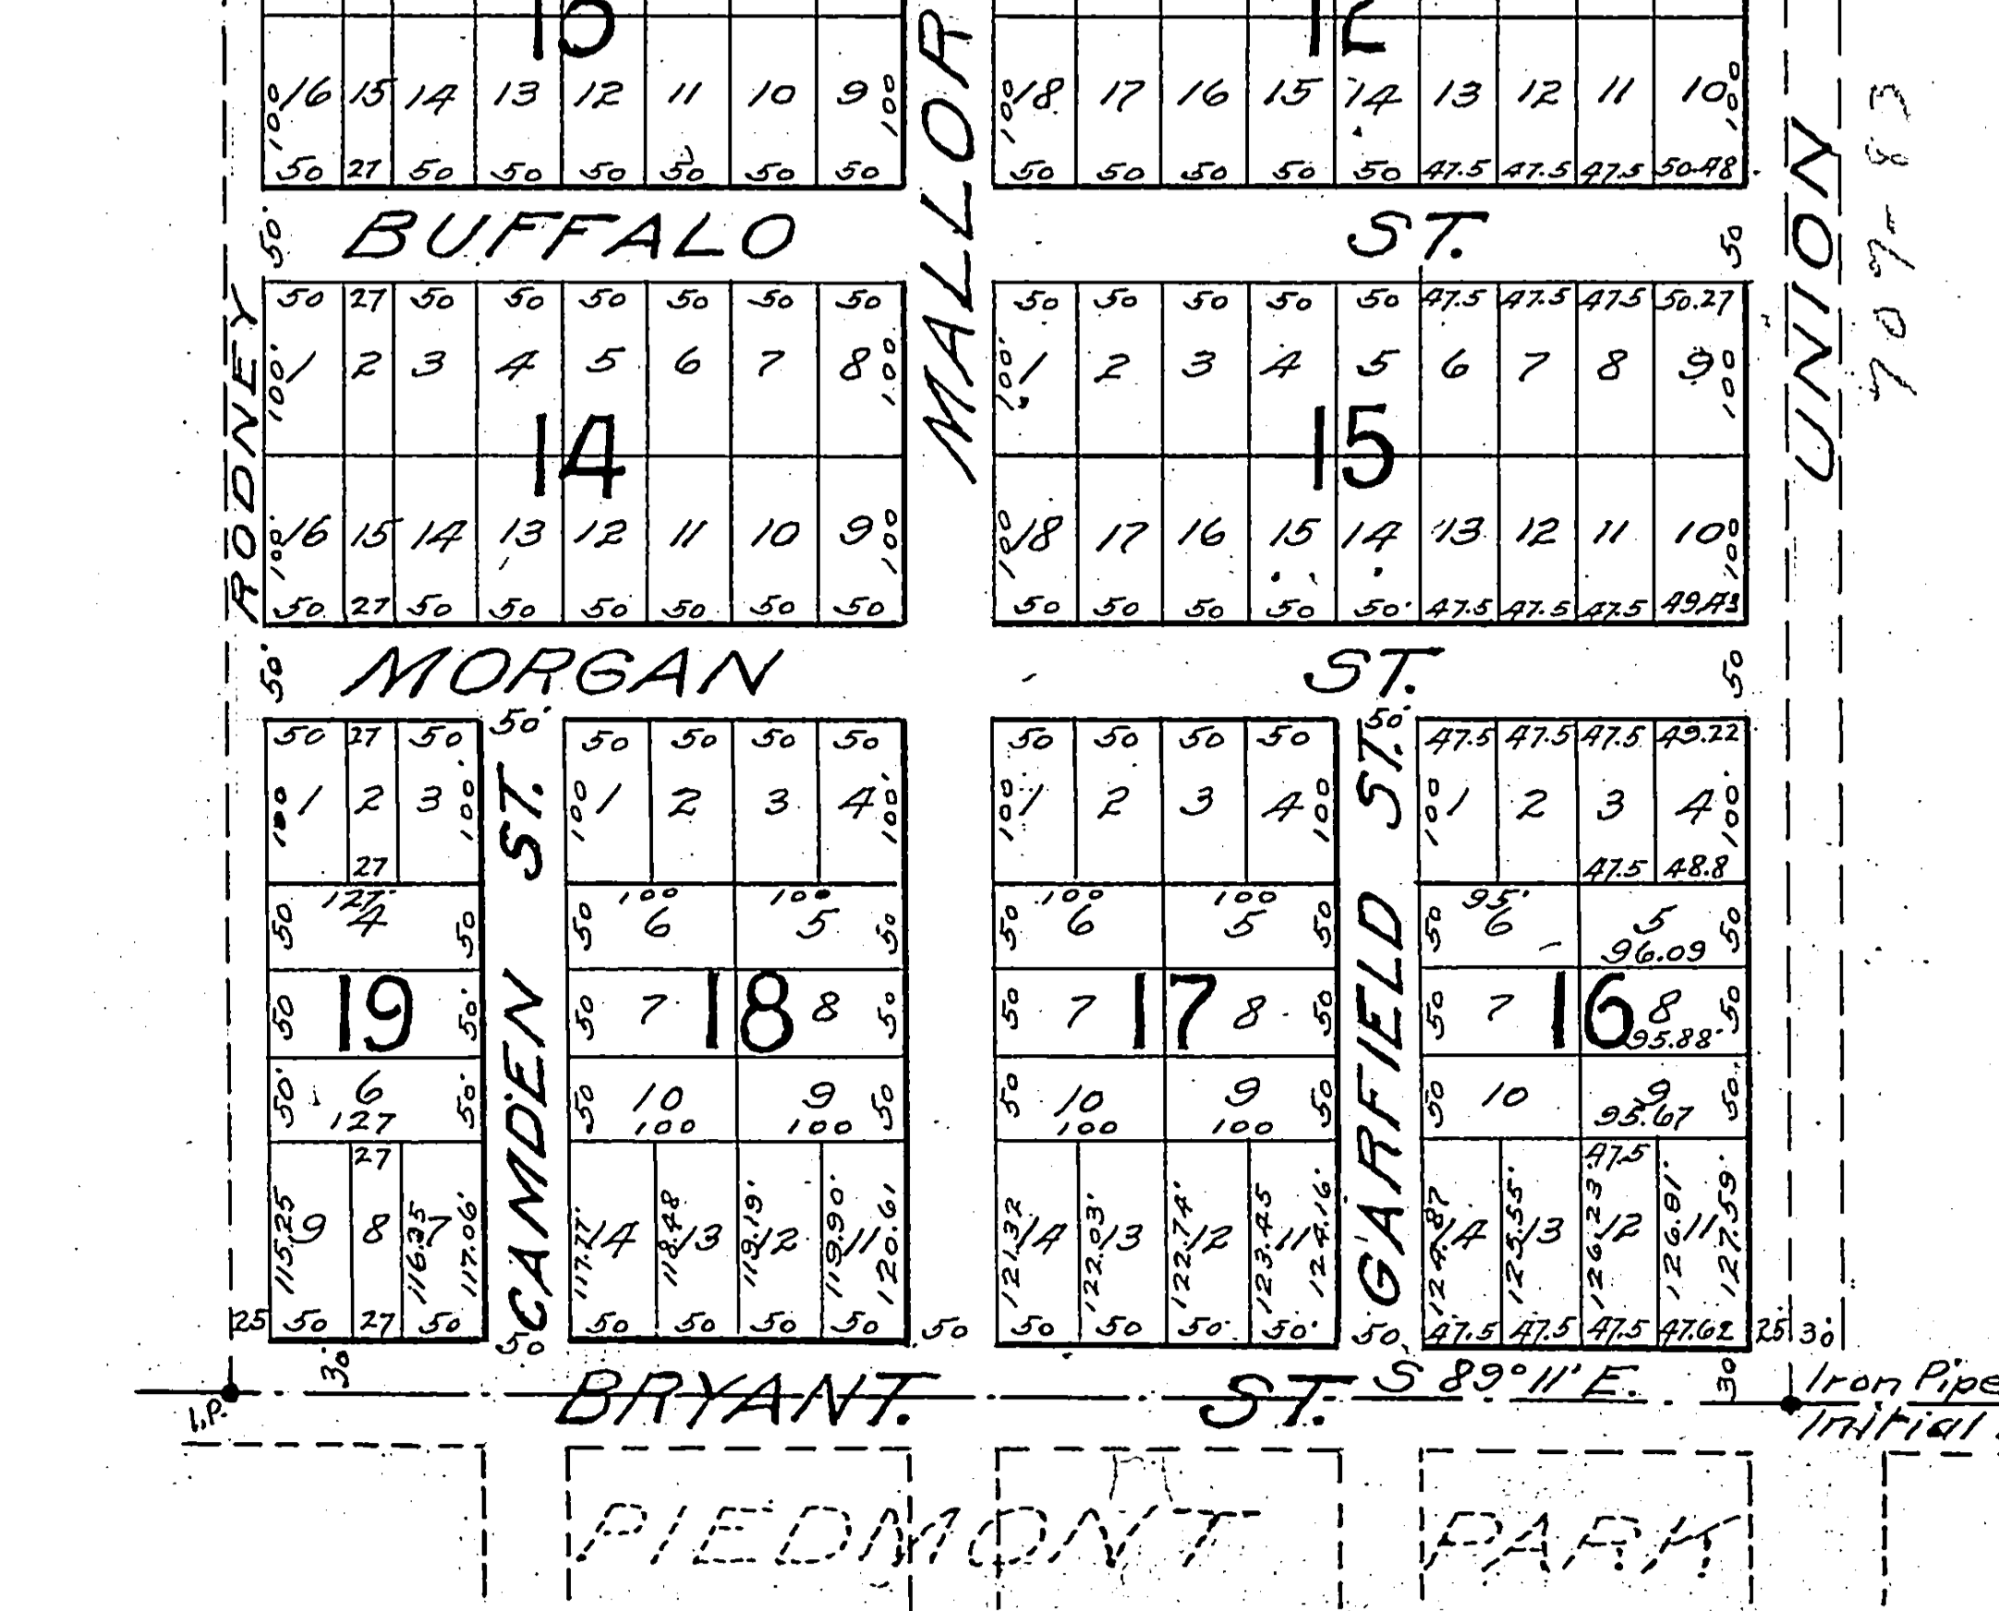 16 15 14 13 12 11 10 9
100 100
50 27 50 50 50 50 50 50
18 17 16 15 14 13 12 11 10
100 100
50 50 50 50 50 47.5 47.5 47.5 50.48
707-83
50' BUFFALO ST. 50
MALLOR
UNION
RODNEY
50 27 50 50 50 50 50 50
100' 1 2 3 4 5 6 7 8 100
14
100' 16 15 14 13 12 11 10 9 100
50 27 50 50 50 50 50 50
50 50 50 50 50 47.5 47.5 47.5 50.27
100' 1 2 3 4 5 6 7 8 9 100
15
100 18 17 16 15 14 13 12 11 10 100
50 50 50 50 50' 47.5 47.5 47.5 49.43
50' MORGAN ST. 50
50 27 50
100 1 2 3 100
27
127'
50 4 50
50 19 50'
50' 6 50'
127
27
115.25 9 8 116.35 7 117.06'
25 50 27 50
50'
CAMDEN ST.
50
50 50 50 50
100 1 2 3 4 100'
100 100
50 6 5 50
50 7 18 8 50
50 10 9 50
100 100
117.77' 14 118.48 13 119.19' 12 119.90' 11 120.61
50 50 50 50
50
50 50 50 50
100 1 2 3 4 100
100 100
50 6 5 50
50 7 17 8 50
50 10 9 50
100 100
121.32 14 122.03' 13 122.74' 12 123.45 11 124.16'
50 50 50 50'
50'
GARFIELD ST.
50
47.5 47.5 47.5 49.22
100 1 2 3 4 100'
47.5 48.8
95'
50 6 5 50
96.09
50 7 16 8 50
95.88'
50 10 9 50
95.67
47.5
124.87 14 125.55' 13 126.23' 12 126.91' 11 127.59'
47.5 47.5 47.5 47.62 25 30'
30' 30
S 89° 11' E.
I.P. BRYANT. ST. Iron Pipe
Initial
PIEDMONT PARK